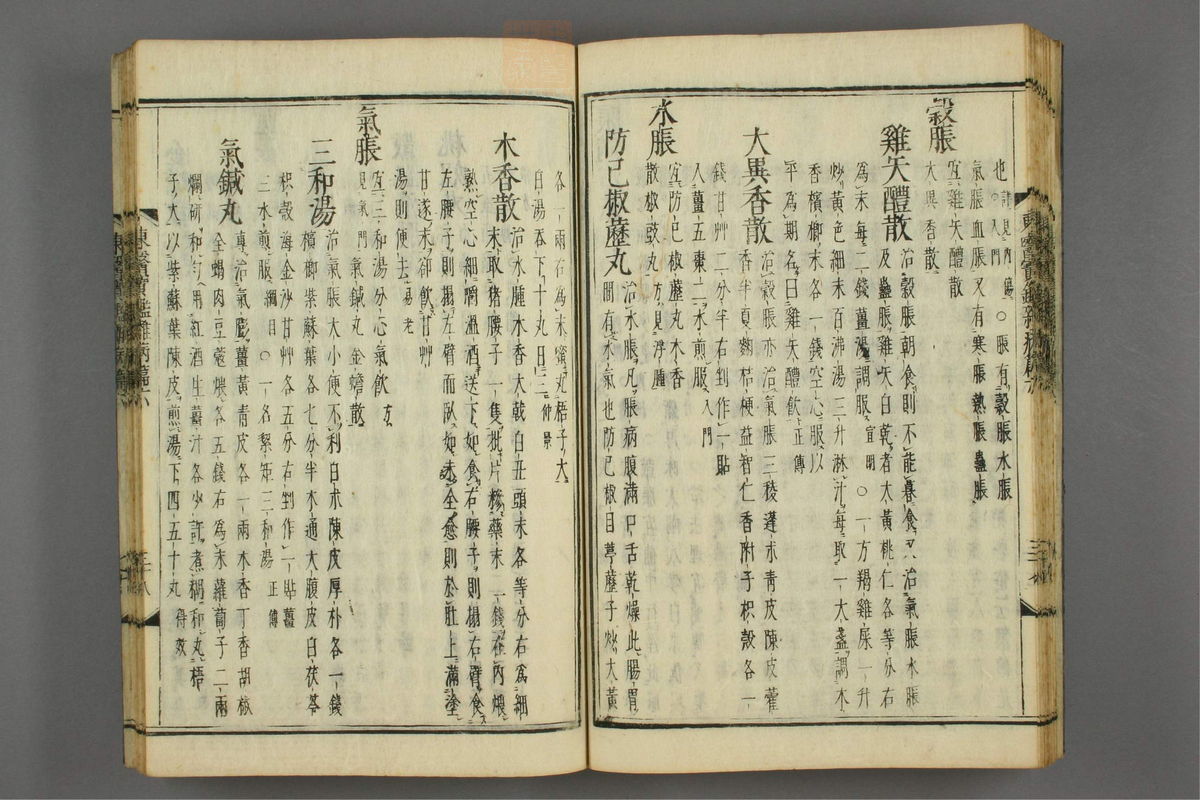 也詳見內傷入門○脹有穀脹水脹
氣脹血脹又有寒脹熱脹蠱脹
穀脹
宜雞矢醴散
大異香散
雞矢醴散治穀脹朝食則不能暮食又治氣脹水脹
及蠱脹雞矢白乾者大黃桃仁各等分右
爲末每二錢薑湯調服宣明○一方羯雞屎一升
炒黃色百沸湯三升淋汁每取一大盞調木
香檳榔末各一錢空心服以
平爲期名曰雞矢醴飮正傳
大異香散治穀脹亦治氣脹三稜蓬朮靑皮陳皮藿
香半夏麴桔梗益智仁香附子枳殼各一
錢甘艸二分半右剉分作一貼
入薑五棗二水煎服入門
水脹
宜防己椒藶丸木香
散椒豉丸方見浮腫
防己椒藶丸治水脹凡脹病腹滿口舌乾燥此腸胃
間有水氣也防己椒目葶藶子炒大黃
各一兩右爲末蜜丸梧子大
白湯呑下十丸日三仲景
木香散治水腫木香大戟白丑頭末各等分右爲細
末取猪腰子一隻批片糝藥末二錢在內煨
熟空心細嚼溫酒送下如食右腰子則搨右臂食
左腰子則搨左臂而臥如未全愈則於肚上滿塗
甘遂末卻飮甘艸
湯則便去易老
氣脹
宜三和湯分心氣飮方
見氣門氣鍼丸金蟾散
三和湯治氣脹大小便不利白朮陳皮厚朴各一錢
檳榔紫蘇葉各七分半木通大腹皮白茯苓
枳殼海金沙甘艸各五分右剉作一貼薑
三水煎服綱目○一名絜矩三和湯正傳
氣鍼丸專治氣膨薑黃靑皮各一兩木香丁香胡椒
全蝎肉豆蔲煨各五錢右爲末蘿蔔子二兩
爛硏和勻用紅酒生薑汁各少許煮糊和丸梧
子大以紫蘇葉陳皮煎湯下四五十丸得效